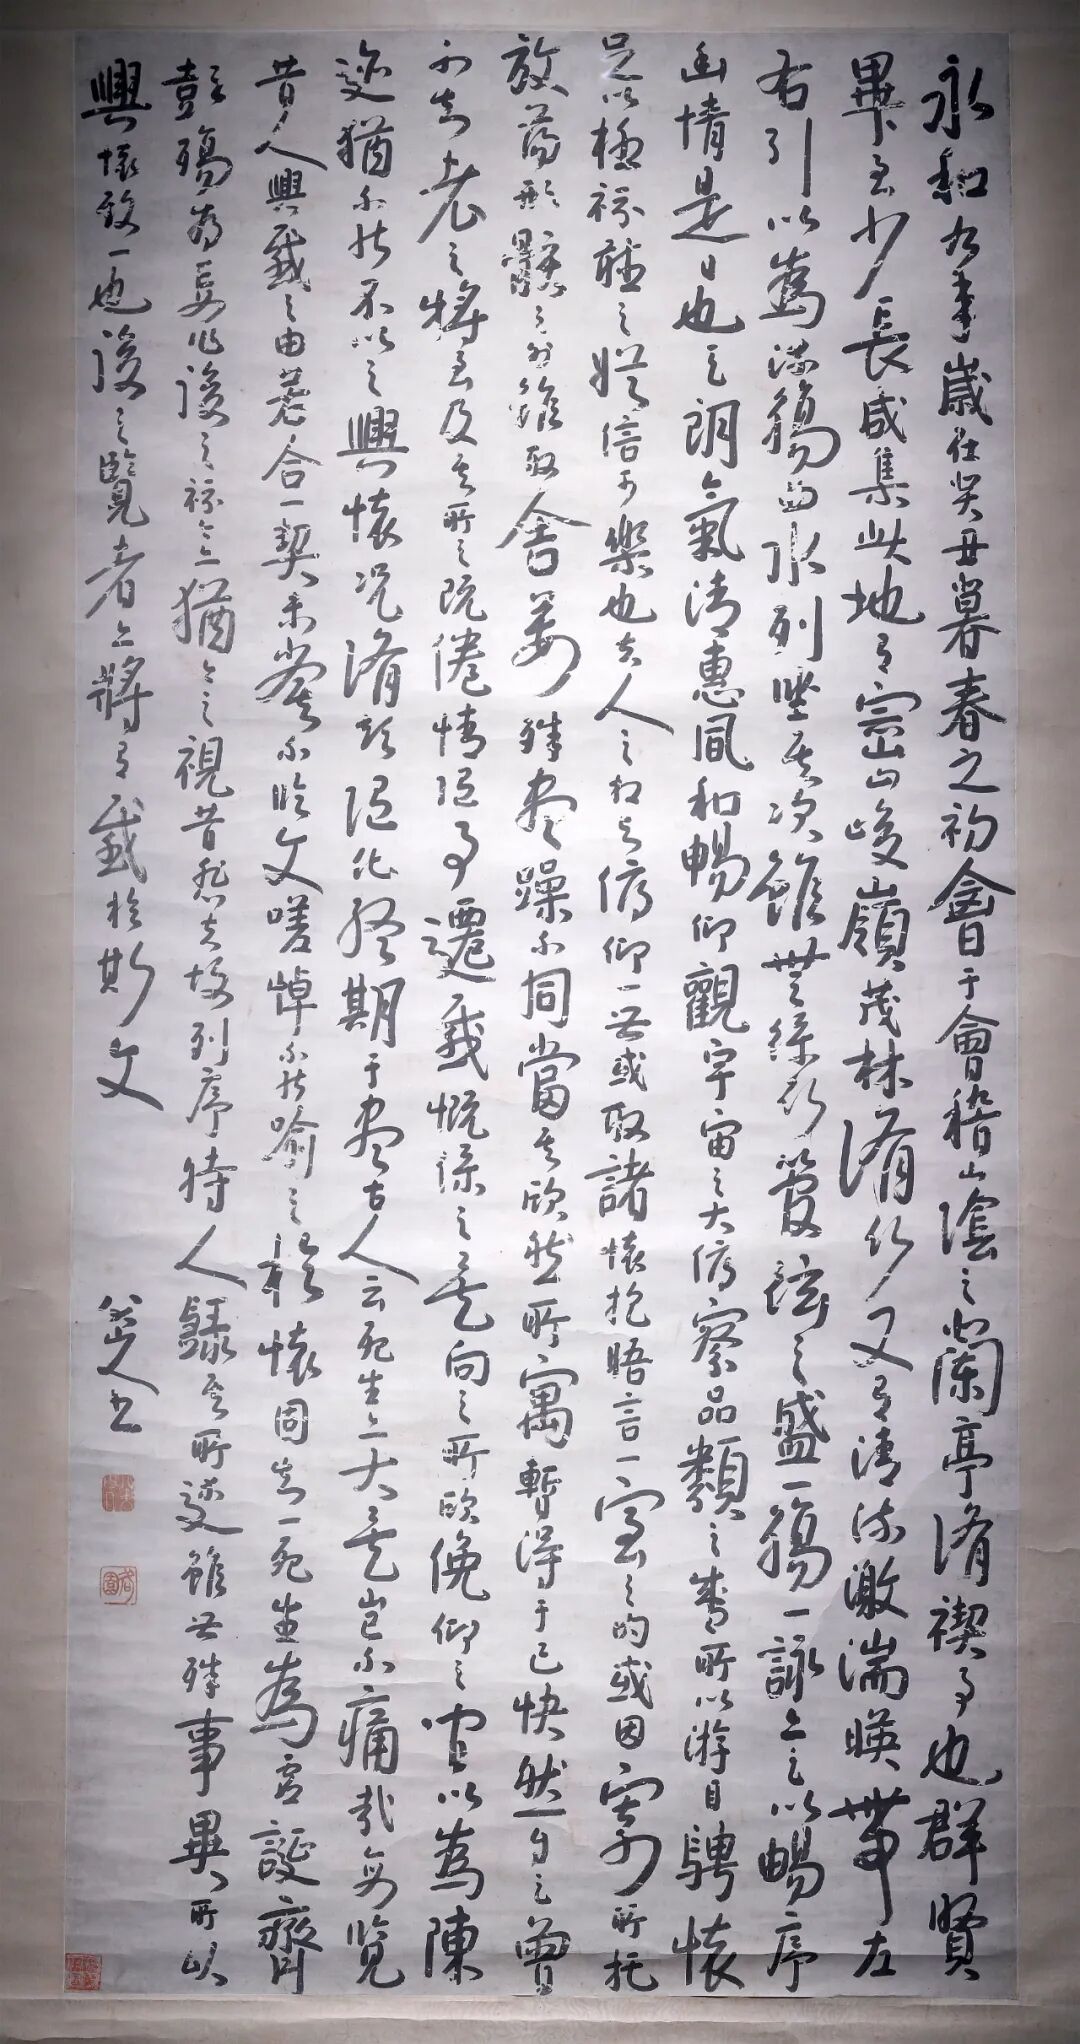 永和九年歲在癸丑暮春之初會于會稽山陰之蘭亭脩禊事也群賢
畢至少長咸集此地有崇山峻嶺茂林脩竹又有清流激湍暎帶左
右引以為流觴曲水列坐其次雖無絲竹管弦之盛一觴一詠亦足以暢序
幽情是日也天朗氣清惠風和暢仰觀宇宙之大俯察品類之盛所以游目騁懷
足以極視聽之娛信可樂也夫人之相與俯仰一世或取諸懷抱晤言一室之內或因寄所托
放蕩形骸之外雖取舍萬殊靜躁不同當其欣然所寓暫得于己快然自足曾
不知老之將至及其所之既倦情隨事遷感慨係之矣向之所欣俛仰之間以為陳
迹猶不能不以之興懷況脩短隨化終期于盡古人云死生亦大矣豈不痛哉每覽
昔人興感之由若合一契未嘗不臨文嗟悼不能喻之於懷固知一死生為虛誕齊
彭殤為妄作後之視今亦猶今之視昔悲夫故列序時人錄其所述雖世殊事異所以
興懷致一也後之覽者亦將有感於斯文
八大山人書